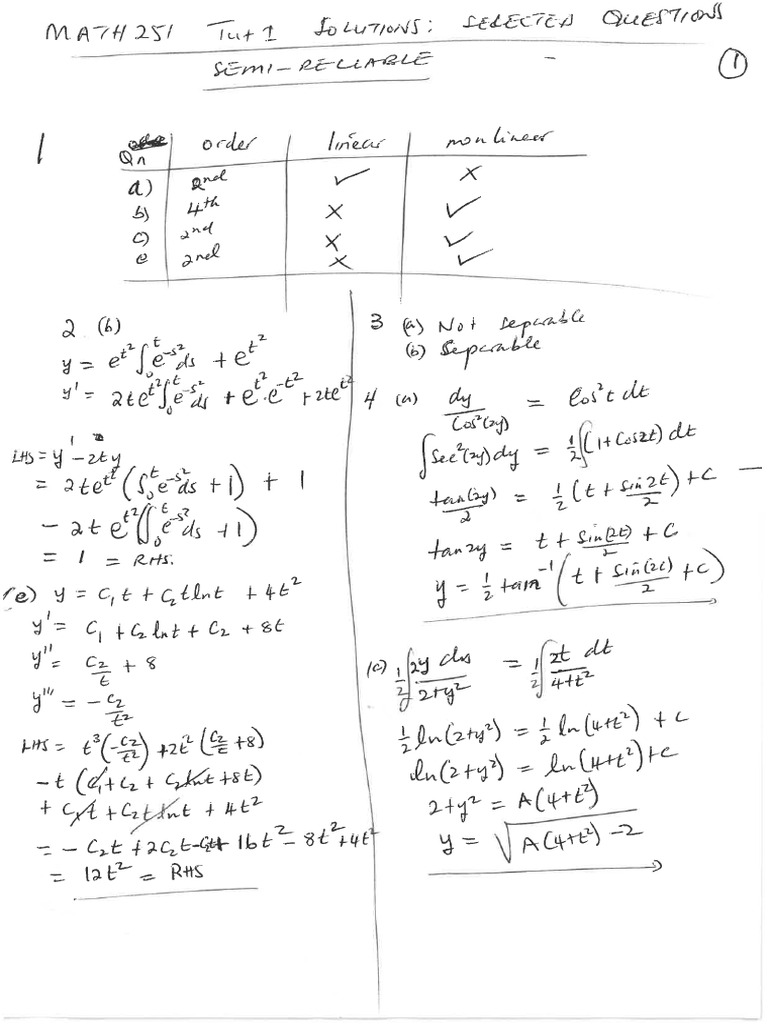 MATH 251 Tut 1 SOLUTIONS: SELECTED QUESTIONS
SEMI-RELIABLE
①
1
Qn order linear nonlinear
a) 2nd ✓ ×
b) 4th × ✓
c) 2nd × ✓
e 2nd × ✓
2 (b)
y = e^{t²} ∫₀ᵗ e^{-s²} ds + e^{t²}
y' = 2te^{t²} ∫₀ᵗ e^{-s²} ds + e^{t²}·e^{-t²} + 2te^{t²}
LHS = y' - 2ty
= 2te^{t²} (∫₀ᵗ e^{-s²} ds + 1) + 1
- 2te^{t²} (∫₀ᵗ e^{-s²} ds + 1)
= 1 = RHS.
(e) y = C₁t + C₂tlnt + 4t²
y' = C₁ + C₂lnt + C₂ + 8t
y'' = C₂/t + 8
y''' = -C₂/t²
LHS = t³(-C₂/t²) + 2t²(C₂/t + 8)
-t (C₁ + C₂ + C₂lnt + 8t)
+ C₁t + C₂tlnt + 4t²
= -C₂t + 2C₂t - C₂t + 16t² - 8t² + 4t²
= 12t² = RHS
3 (a) Not separable
(b) Separable
4 (a) dy/Cos²(2y) = Cos²t dt
∫Sec²(2y)dy = ½∫(1+Cos2t) dt
tan(2y)/2 = ½(t + Sin2t/2) + C
tan2y = t + Sin(2t)/2 + C
y = ½ tan⁻¹(t + Sin(2t)/2 + C)
(c) ½∫2y dy/2+y² = ½∫2t dt/4+t²
½ln(2+y²) = ½ln(4+t²) + C
ln(2+y²) = ln(4+t²) + C
2+y² = A(4+t²)
y = √(A(4+t²) - 2)